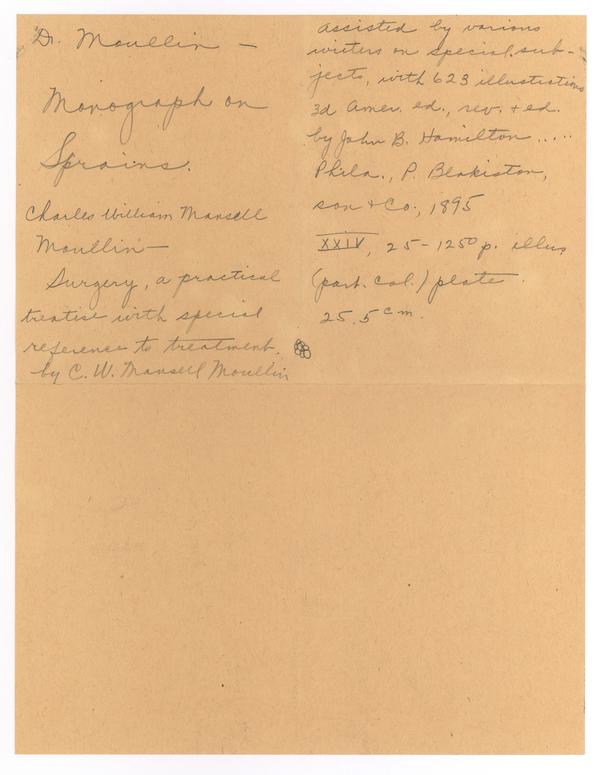 Dr. Moullin —
Monograph on
Sprains.
Charles William Mansell
Moullin —
Surgery, a practical
treatise with special
reference to treatment.
by C. W. Mansell Moullin
assisted by various
writers on special sub-
jects, with 623 illustrations
3d Amer. ed., rev. + ed.
by John B. Hamilton .....
Phila., P. Blakiston,
son + Co., 1895
XXIV, 25-1250 p. illus
(part. col.) plate.
25.5 cm.